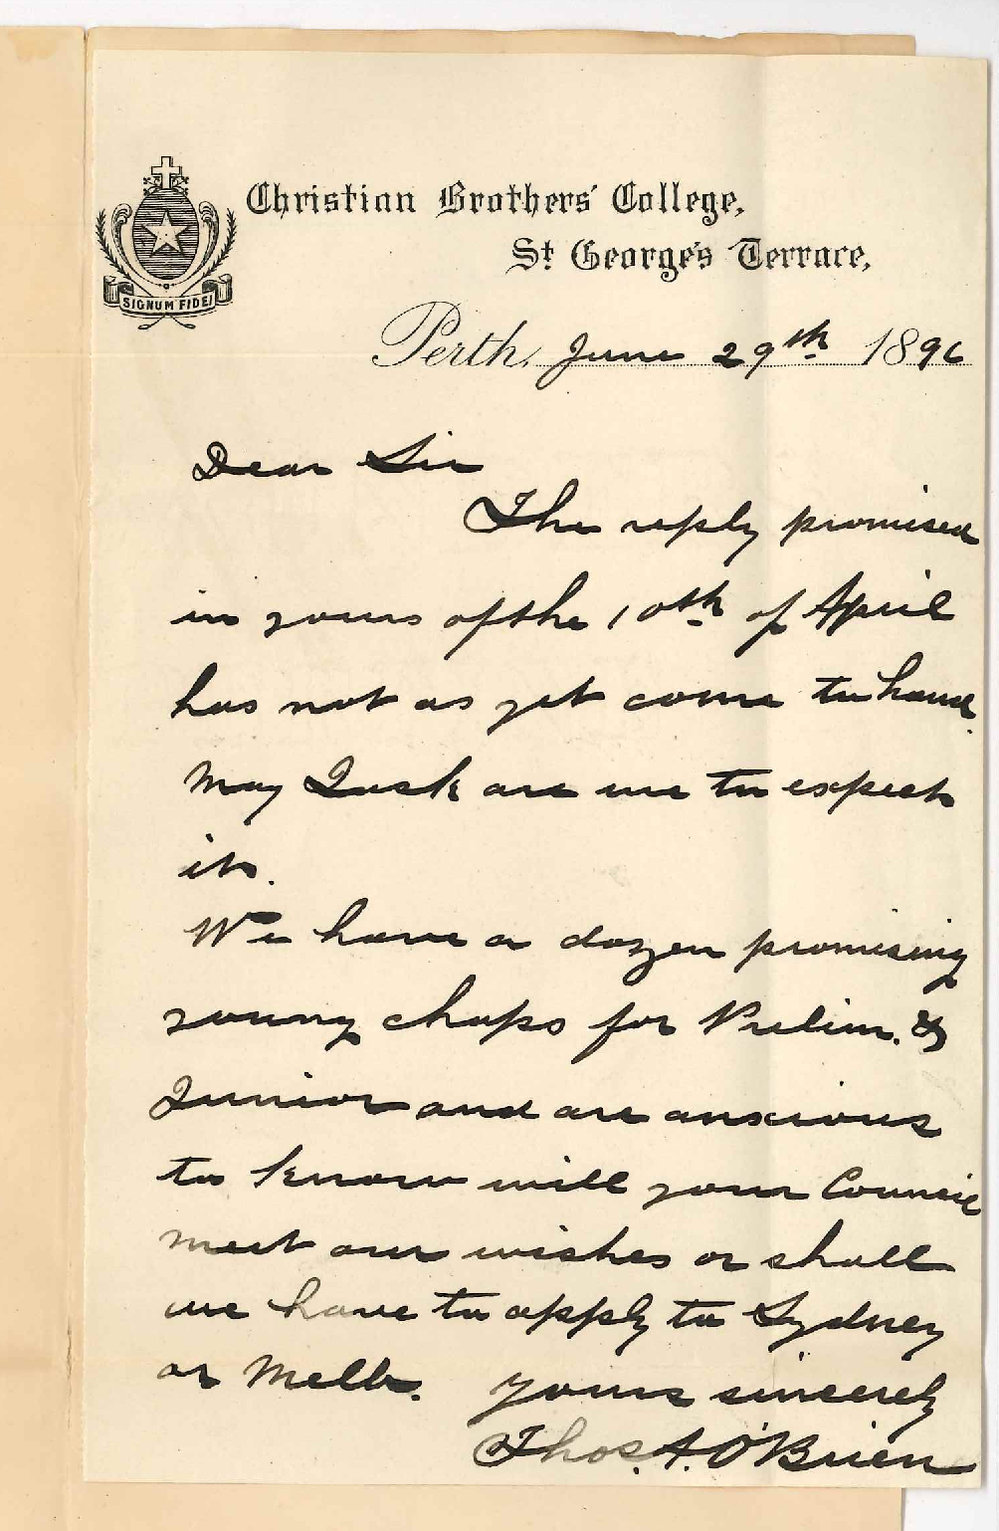 Christian Brothers' College,
St. George's Terrace,
SIGNUM FIDEI
Perth, June 29th 1896
Dear Sir
The reply promised
in yours of the 10th of April
has not as yet come to hand.
May I ask are we to expect
it.
We have a dozen promising
young chaps for Prelim. &
Junior and are anxious
to know will your Council
meet our wishes or shall
we have to apply to Sydney
or Melb. yours sincerely
Thos. A. O'Brien